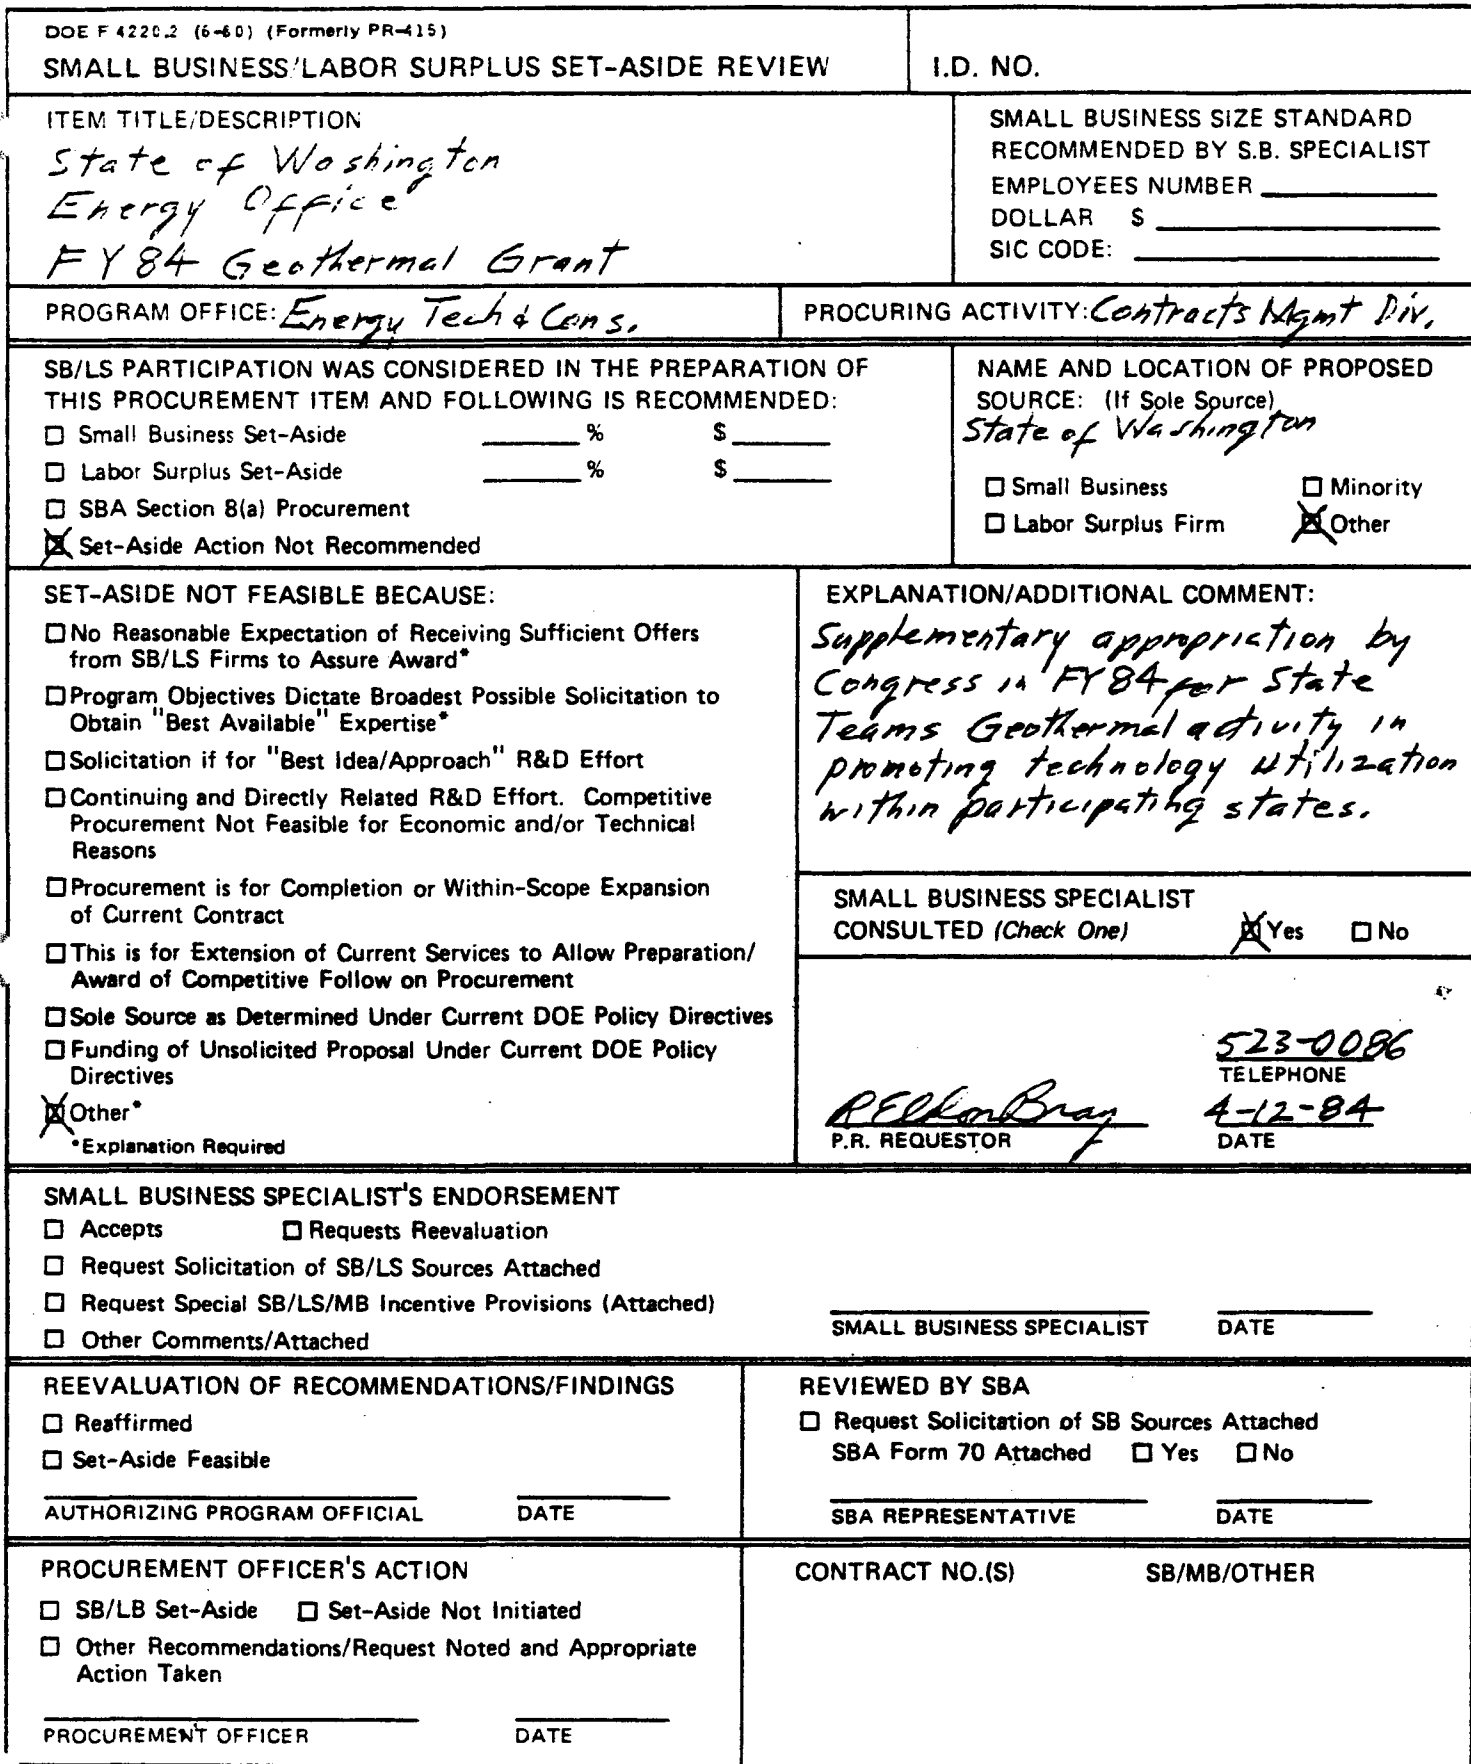 DOE F 4220.2 (6-80) (Formerly PR-415)
SMALL BUSINESS/LABOR SURPLUS SET-ASIDE REVIEW
I.D. NO.
ITEM TITLE/DESCRIPTION
State of Washington
Energy Office
FY84 Geothermal Grant
SMALL BUSINESS SIZE STANDARD
RECOMMENDED BY S.B. SPECIALIST
EMPLOYEES NUMBER
DOLLAR $
SIC CODE:
PROGRAM OFFICE: Energy Tech & Cons.
PROCURING ACTIVITY: Contracts Mgmt Div.
SB/LS PARTICIPATION WAS CONSIDERED IN THE PREPARATION OF
THIS PROCUREMENT ITEM AND FOLLOWING IS RECOMMENDED:
☐ Small Business Set-Aside ______% $______
☐ Labor Surplus Set-Aside ______% $______
☐ SBA Section 8(a) Procurement
☒ Set-Aside Action Not Recommended
NAME AND LOCATION OF PROPOSED
SOURCE: (If Sole Source)
State of Washington
☐ Small Business ☐ Minority
☐ Labor Surplus Firm ☒ Other
SET-ASIDE NOT FEASIBLE BECAUSE:
☐ No Reasonable Expectation of Receiving Sufficient Offers
from SB/LS Firms to Assure Award*
☐ Program Objectives Dictate Broadest Possible Solicitation to
Obtain "Best Available" Expertise*
☐ Solicitation if for "Best Idea/Approach" R&D Effort
☐ Continuing and Directly Related R&D Effort. Competitive
Procurement Not Feasible for Economic and/or Technical
Reasons
☐ Procurement is for Completion or Within-Scope Expansion
of Current Contract
☐ This is for Extension of Current Services to Allow Preparation/
Award of Competitive Follow on Procurement
☐ Sole Source as Determined Under Current DOE Policy Directives
☐ Funding of Unsolicited Proposal Under Current DOE Policy
Directives
☒ Other*
*Explanation Required
EXPLANATION/ADDITIONAL COMMENT:
Supplementary appropriation by
Congress in FY84 for State
Teams Geothermal activity in
promoting technology utilization
within participating states.
SMALL BUSINESS SPECIALIST
CONSULTED (Check One) ☒ Yes ☐ No
523-0086
TELEPHONE
R Eldon Bray 4-12-84
P.R. REQUESTOR DATE
SMALL BUSINESS SPECIALIST'S ENDORSEMENT
☐ Accepts ☐ Requests Reevaluation
☐ Request Solicitation of SB/LS Sources Attached
☐ Request Special SB/LS/MB Incentive Provisions (Attached)
☐ Other Comments/Attached
SMALL BUSINESS SPECIALIST DATE
REEVALUATION OF RECOMMENDATIONS/FINDINGS
☐ Reaffirmed
☐ Set-Aside Feasible
AUTHORIZING PROGRAM OFFICIAL DATE
REVIEWED BY SBA
☐ Request Solicitation of SB Sources Attached
SBA Form 70 Attached ☐ Yes ☐ No
SBA REPRESENTATIVE DATE
PROCUREMENT OFFICER'S ACTION
☐ SB/LB Set-Aside ☐ Set-Aside Not Initiated
☐ Other Recommendations/Request Noted and Appropriate
Action Taken
PROCUREMENT OFFICER DATE
CONTRACT NO.(S) SB/MB/OTHER